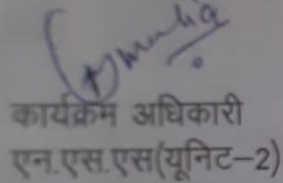 कार्यक्रम अधिकारी
एन.एस.एस(यूनिट-2)